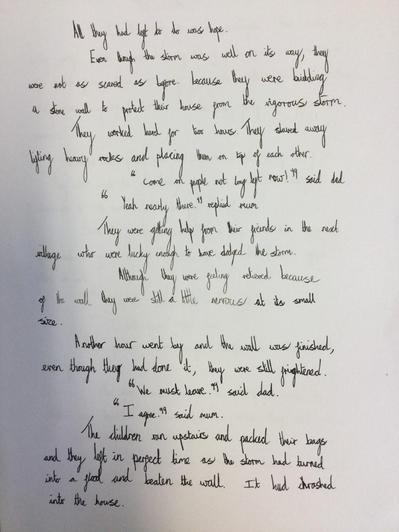 All they had left to do was hope.
Even though the storm was well on its way, they
were not as scared as before because they were building
a stone wall to protect their house from the vigorous storm.
They worked hard for two hours. They slaved away
lifting heavy rocks and placing them on top of each other.
"Come on people not long left now!" said dad
"Yeah nearly there." replied mum
They were getting help from their friends in the next
village who were lucky enough to have dodged the storm.
Although they were feeling relieved because
of the wall they were still a little nervous at its small
size.
Another hour went by and the wall was finished,
even though they had done it, they were still frightened.
"We must leave." said dad.
"I agree." said mum.
The children ran upstairs and packed their bags
and they left in perfect time as the storm had turned
into a flood and beaten the wall. It had thrashed
into the house.